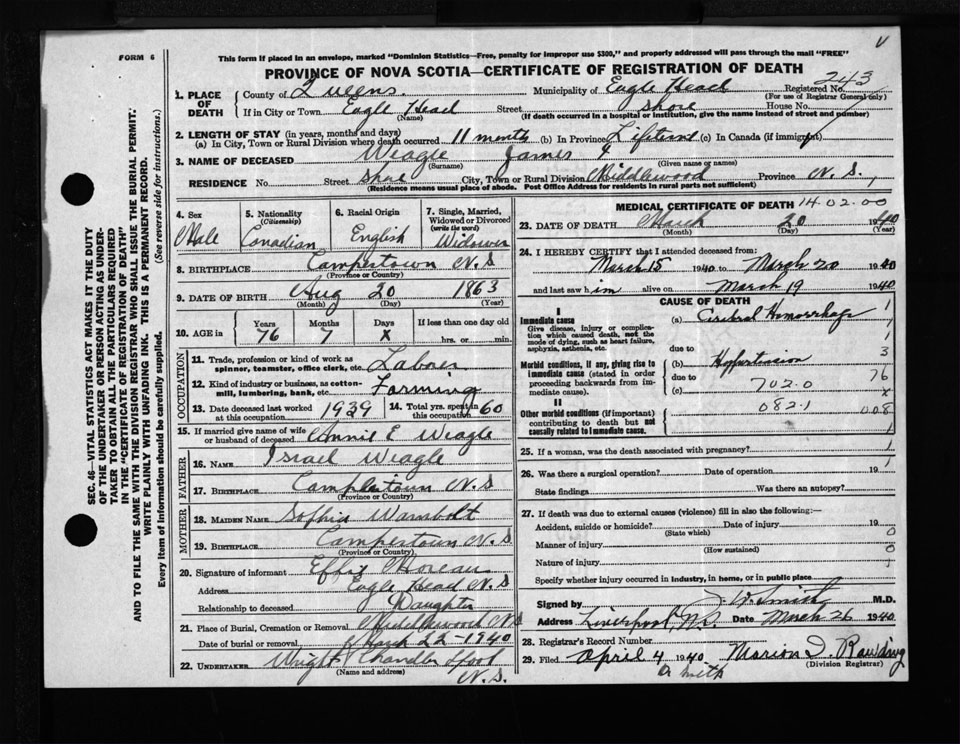 FORM 6
This form if placed in an envelope, marked "Dominion Statistics—Free, penalty for improper use $300," and properly addressed will pass through the mail "FREE"
PROVINCE OF NOVA SCOTIA—CERTIFICATE OF REGISTRATION OF DEATH
243
1. PLACE OF DEATH
County of Queens. Municipality of Eagle Head Registered No.
(For use of Registrar General only)
If in City or Town Eagle Head Street Shore House No.
(Name) (If death occurred in a hospital or institution, give the name instead of street and number)
2. LENGTH OF STAY (in years, months and days)
(a) In City, Town or Rural Division where death occurred 11 months (b) In Province Lifetime (c) In Canada (if immigrant)
3. NAME OF DECEASED Weagle James
(Surname) (Given name or names)
RESIDENCE No. Street Shore City, Town or Rural Division Middlewood Province N. S.
(Residence means usual place of abode. Post Office Address for residents in rural parts not sufficient)
SEC. 46—VITAL STATISTICS ACT MAKES IT THE DUTY
OF THE UNDERTAKER OR PERSON ACTING AS UNDER-
TAKER TO OBTAIN ALL THE PARTICULARS REQUIRED
IN THE "CERTIFICATE OF REGISTRATION OF DEATH"
AND TO FILE THE SAME WITH THE DIVISION REGISTRAR WHO SHALL ISSUE THE BURIAL PERMIT.
WRITE PLAINLY WITH UNFADING INK. THIS IS A PERMANENT RECORD.
Every item of information should be carefully supplied. (See reverse side for instructions.)
4. Sex
Male
5. Nationality
(Citizenship)
Canadian
6. Racial Origin
English
7. Single, Married, Widowed or Divorced
(write the word)
Widower
8. BIRTHPLACE Campertown N. S
(Province or Country)
9. DATE OF BIRTH Aug 20 1863
(Month) (Day) (Year)
10. AGE in Years Months Days If less than one day old
76 7 X hrs. or min.
OCCUPATION
11. Trade, profession or kind of work as
spinner, teamster, office clerk, etc. Laborer
12. Kind of industry or business, as cotton-
mill, lumbering, bank, etc. Farming
13. Date deceased last worked at this occupation 1939 14. Total yrs. spent in this occupation 60
15. If married give name of wife
or husband of deceased Annie E Weagle
FATHER
16. NAME Israel Weagle
17. BIRTHPLACE Campertown N. S
(Province or Country)
MOTHER
18. MAIDEN NAME Sophia Wambolt
19. BIRTHPLACE Campertown N. S
(Province or Country)
20. Signature of informant Effie
Address Eagle Head N. S
Relationship to deceased Daughter
21. Place of Burial, Cremation or Removal Middlewood N S
Date of burial or removal March 22-1940
22. UNDERTAKER Wright Chandler
(Name and address) N. S.
MEDICAL CERTIFICATE OF DEATH 14.02.00
23. DATE OF DEATH March 20 1940
(Month) (Day) (Year)
24. I HEREBY CERTIFY that I attended deceased from:
March 15 1940 to March 20 1940
and last saw him alive on March 19 1940
CAUSE OF DEATH
I
Immediate cause
Give disease, injury or complica-
tion which caused death, not the
mode of dying, such as heart failure,
asphyxia, asthenia, etc.
(a) Cerebral Hemorrhage
due to
Morbid conditions, if any, giving rise to
immediate cause (stated in order
proceeding backwards from im-
mediate cause).
(b) Hypertension
due to
(c) 702.0
II
Other morbid conditions (if important)
contributing to death but not
causally related to immediate cause.
082.1
1
3
76
X
008
25. If a woman, was the death associated with pregnancy?
26. Was there a surgical operation? Date of operation 19
State findings Was there an autopsy?
27. If death was due to external causes (violence) fill in also the following:—
Accident, suicide or homicide? Date of injury 19
(State which)
Manner of injury
(How sustained)
Nature of injury
Specify whether injury occurred in industry, in home, or in public place
Signed by J. W. Smith M.D.
Address Liverpool, N.S. Date March 26 1940
28. Registrar's Record Number
29. Filed April 4 1940 Marion D. Rawding
(Division Registrar)
Dr Smith